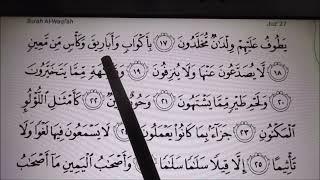 Surah Al-Waqi'ah Juz' 27
يَطُوفُ عَلَيْهِمْ وِلْدَٰنٌ مُّخَلَّدُونَ ١٧ بِأَكْوَابٍ وَأَبَارِيقَ وَكَأْسٍ مِّن مَّعِينٍ
١٨ لَّا يُصَدَّعُونَ عَنْهَا وَلَا يُنزِفُونَ ١٩ وَفَٰكِهَةٍ مِّمَّا يَتَخَيَّرُونَ
٢٠ وَلَحْمِ طَيْرٍ مِّمَّا يَشْتَهُونَ ٢١ وَحُورٌ عِينٌ ٢٢ كَأَمْثَٰلِ ٱللُّؤْلُؤِ
ٱلْمَكْنُونِ ٢٣ جَزَآءًۢ بِمَا كَانُوا۟ يَعْمَلُونَ ٢٤ لَا يَسْمَعُونَ فِيهَا لَغْوًا وَلَا
تَأْثِيمًا ٢٥ إِلَّا قِيلًا سَلَٰمًا سَلَٰمًا ٢٦ وَأَصْحَٰبُ ٱلْيَمِينِ مَآ أَصْحَٰبُ